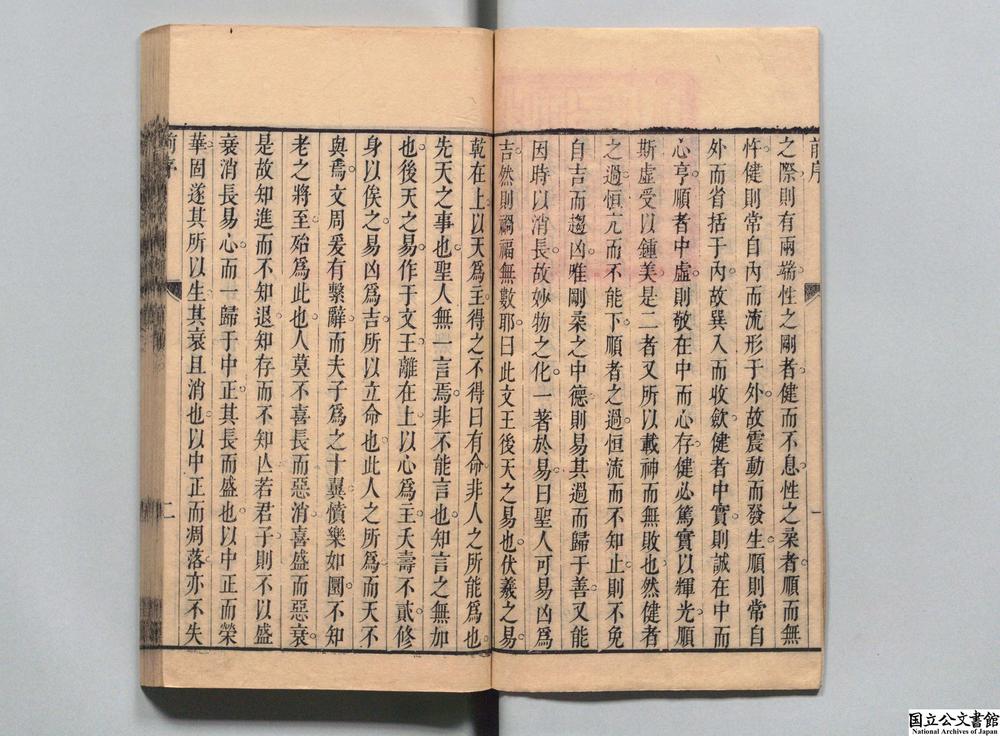 前序
一
之際則有兩端性之剛者健而不息性之柔者順而無
忤健則常自內而流形于外故震動而發生順則常自
外而省括于內故巽入而收歛健者中實則誠在中而
心亨順者中虛則敬在中而心存健必篤實以輝光順
斯虛受以鍾美是二者又所以載神而無敗也然健者
之過恒亢而不能下順者之過恒流而不知止則不免
自吉而趨凶唯剛柔之中德則易其過而歸于善又能
因時以消長故妙物之化一著於易曰聖人可易凶爲
吉然則禍福無數耶曰此文王後天之易也伏羲之易
乾在上以天爲主得之不得曰有命非人之所能爲也
先天之事也聖人無一言焉非不能言也知言之無如
也後天之易作于文王離在上以心爲主夭壽不貳修
身以俟之易凶爲吉所以立命也此人之所爲而天不
與焉文周爰有繫辭而夫子爲之十翼憤樂如圜不知
老之將至殆爲此也人莫不喜長而惡消喜盛而惡衰
是故知進而不知退知存而不知亾若君子則不以盛
衰消長易心而一歸于中正其長而盛也以中正而榮
華固遂其所以生其衰且消也以中正而凋落亦不失
前序
二
国立公文書館
National Archives of Japan